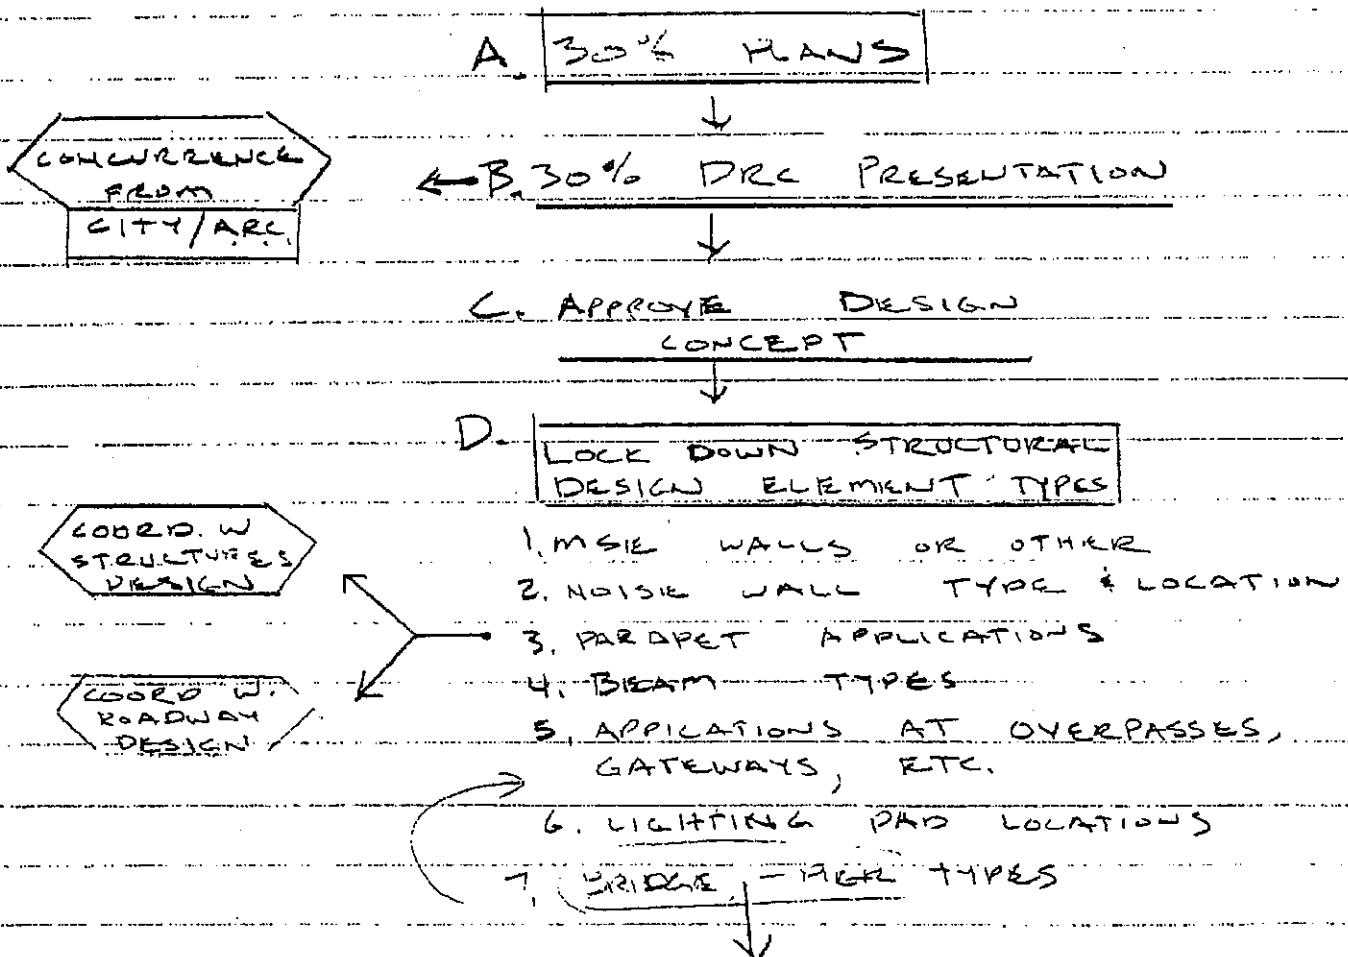 A. 30% PLANS
CONCURRENCE
FROM
CITY/ARC
B. 30% DRC PRESENTATION
C. APPROVE DESIGN
CONCEPT
D. LOCK DOWN STRUCTURAL
DESIGN ELEMENT TYPES
COORD. W
STRUCTURES
DESIGN
COORD W.
ROADWAY
DESIGN
1. MSE WALLS OR OTHER
2. NOISE WALL TYPE & LOCATION
3. PARAPET APPLICATIONS
4. BEAM TYPES
5. APPICATIONS AT OVERPASSES,
GATEWAYS, ETC.
6. LIGHTING PAD LOCATIONS
7. BRIDGE - PIER TYPES